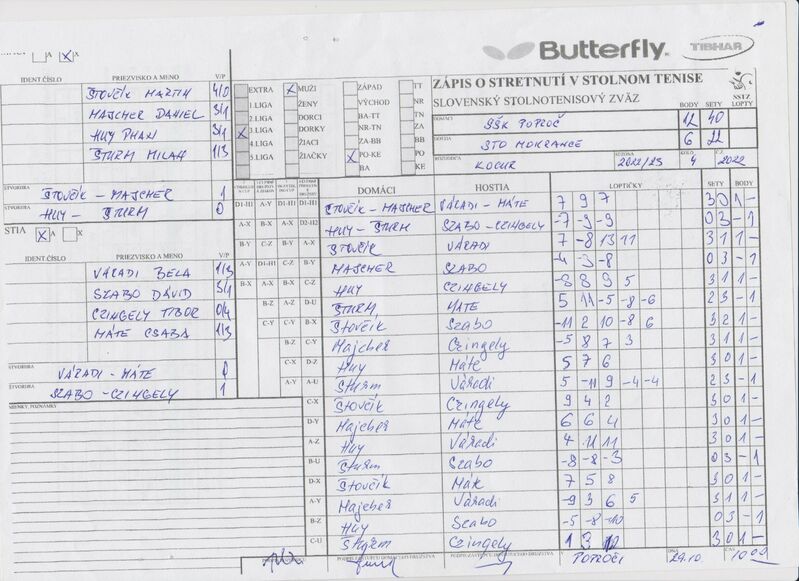 Butterfly TIBHAR
A X
IDENT.ČÍSLO PRIEZVISKO A MENO V/P
ŠTOVČÍK MARTIN 4/0
MAJCHER DANIEL 3/1
HUY PHAN 3/1
ŠTURM MILAN 1/3
ŠTVORHRA ŠTOVČÍK - MAJCHER 1
ŠTVORHRA HUY - ŠTURM 0
STIA A X
IDENT.ČÍSLO PRIEZVISKO A MENO V/P
VÁRADI BELA 1/3
SZABO DÁVID 3/1
CZINGELY TIBOR 0/4
MÁTE CSABA 1/3
ŠTVORHRA VÁRADI - MÁTE 0
ŠTVORHRA SZABO - CZINGELY 1
MENKY, POZNÁMKY
EXTRA MUŽI ZÁPAD TT
1.LIGA ŽENY VÝCHOD NR
2.LIGA DORCI BA-TT TN
3.LIGA DORKY NR-TN ZA
4.LIGA ŽIACI ZA-BB BB
5.LIGA ŽIAČKY PO-KE PO
BA KE
ZÁPIS O STRETNUTÍ V STOLNOM TENISE
SLOVENSKÝ STOLNOTENISOVÝ ZVÄZ
SSTZ
BODY SETY LOPTY
DOMÁCI ŠŠK POPROČ 12 40
HOSTIA STO MOKRANCE 6 22
ROZHODCA KOCUR SEZÓNA 2022/23 KOLO 4 2022
DOMÁCI HOSTIA LOPTIČKY SETY BODY
D1-H1 A-Y D1-H1 D1-H1 ŠTOVČÍK - MAJCHER VÁRADI - MÁTE 7 9 7 3 0 1 -
A-X B-X A-X D2-H2 HUY - ŠTURM SZABO - CZINGELY -7 -9 -9 0 3 - 1
B-Y C-Z B-Y A-X ŠTOVČÍK VÁRADI 7 -8 13 11 3 1 1 -
A-Y D1-H1 C-Z B-Y MAJCHER SZABO -4 -3 -8 0 3 - 1
B-X A-X B-X C-Z HUY CZINGELY -8 8 9 5 3 1 1 -
B-Z A-Z D-U ŠTURM MÁTE 5 11 -5 -8 -6 2 3 - 1
C-Y C-Y B-X Štovčík Szabo -11 2 10 -8 6 3 2 1 -
B-Z C-Y Majcher Czingely -5 8 7 3 3 1 1 -
C-X D-Z Huy Máte 5 7 6 3 0 1 -
A-Y A-U Šturm Váradi 5 -11 9 -4 -4 2 3 - 1
C-X Štovčík Czingely 9 4 2 3 0 1 -
D-Y Majcher Máte 6 6 4 3 0 1 -
A-Z Huy Váradi 4 11 11 3 0 1 -
B-U Šturm Szabo -8 -8 -3 0 3 - 1
D-X Štovčík Máte 7 5 8 3 0 1 -
A-Y Majcher Váradi -9 3 6 5 3 1 1 -
B-Z Huy Szabo -5 -8 -10 0 3 - 1
C-U Šturm Czingely 1 3 10 3 0 1 -
PODPIS ZÁSTUPCU DOMÁCEHO DRUŽSTVA PODPIS ZÁSTUPCU HOSŤUJÚCEHO DRUŽSTVA V POPROČI DŇA 29.10. ČAS 10.00